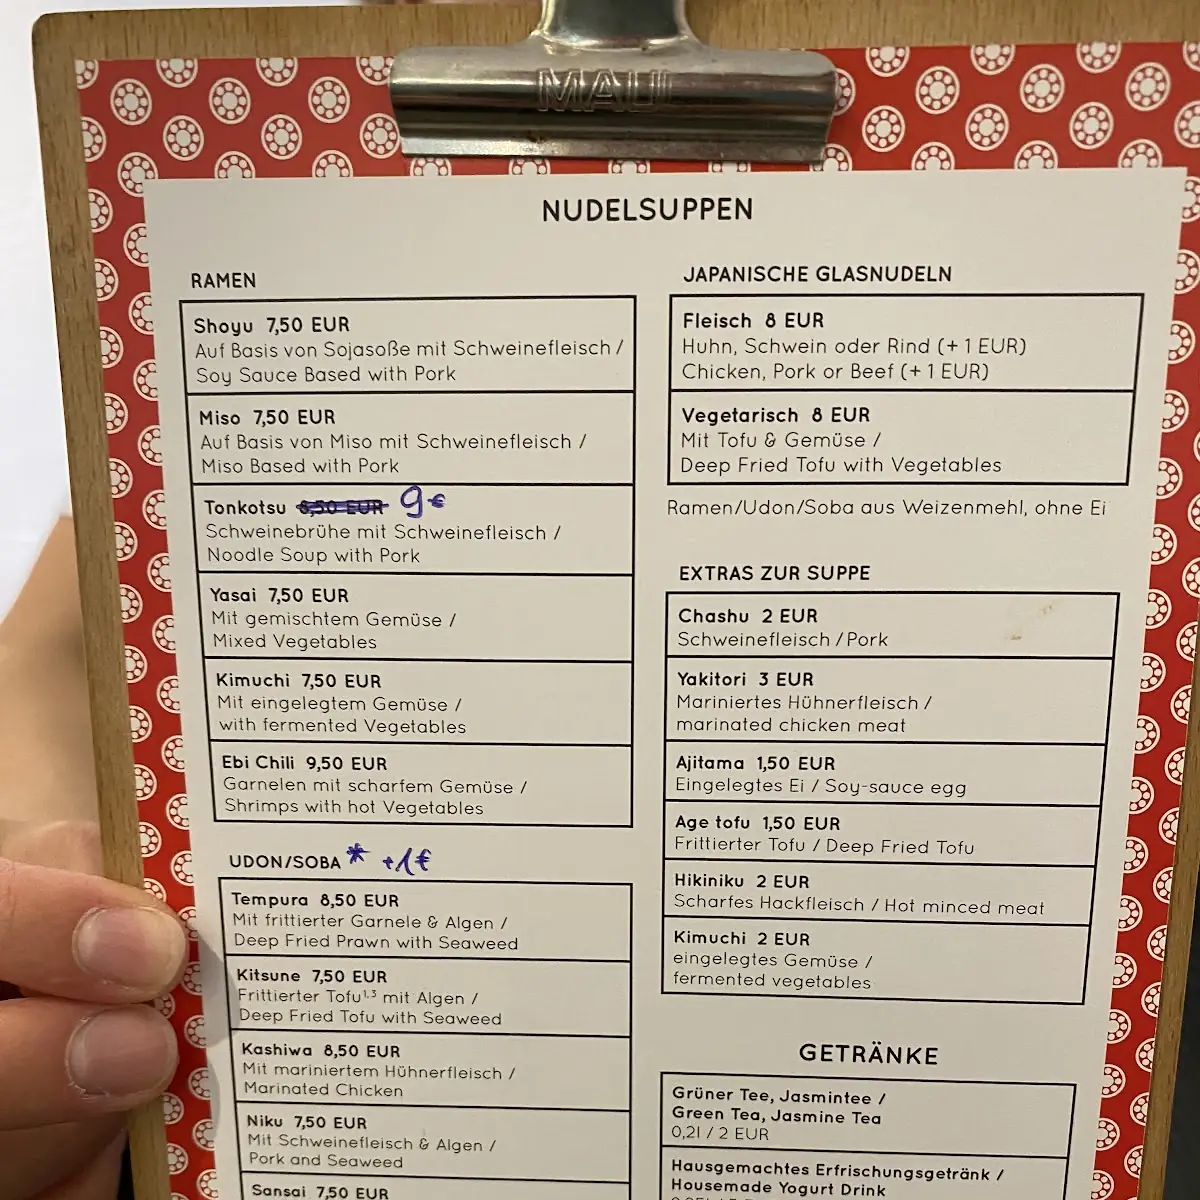 MAUL
NUDELSUPPEN
RAMEN
Shoyu 7,50 EUR
Auf Basis von Sojasoße mit Schweinefleisch /
Soy Sauce Based with Pork
Miso 7,50 EUR
Auf Basis von Miso mit Schweinefleisch /
Miso Based with Pork
Tonkotsu 8,50 EUR 9€
Schweinebrühe mit Schweinefleisch /
Noodle Soup with Pork
Yasai 7,50 EUR
Mit gemischtem Gemüse /
Mixed Vegetables
Kimuchi 7,50 EUR
Mit eingelegtem Gemüse /
with fermented Vegetables
Ebi Chili 9,50 EUR
Garnelen mit scharfem Gemüse /
Shrimps with hot Vegetables
UDON/SOBA * +1€
Tempura 8,50 EUR
Mit frittierter Garnele & Algen /
Deep Fried Prawn with Seaweed
Kitsune 7,50 EUR
Frittierter Tofu¹·³ mit Algen /
Deep Fried Tofu with Seaweed
Kashiwa 8,50 EUR
Mit mariniertem Hühnerfleisch /
Marinated Chicken
Niku 7,50 EUR
Mit Schweinefleisch & Algen /
Pork and Seaweed
Sansai 7,50 EUR
JAPANISCHE GLASNUDELN
Fleisch 8 EUR
Huhn, Schwein oder Rind (+ 1 EUR)
Chicken, Pork or Beef (+ 1 EUR)
Vegetarisch 8 EUR
Mit Tofu & Gemüse /
Deep Fried Tofu with Vegetables
Ramen/Udon/Soba aus Weizenmehl, ohne Ei
EXTRAS ZUR SUPPE
Chashu 2 EUR
Schweinefleisch / Pork
Yakitori 3 EUR
Mariniertes Hühnerfleisch /
marinated chicken meat
Ajitama 1,50 EUR
Eingelegtes Ei / Soy-sauce egg
Age tofu 1,50 EUR
Frittierter Tofu / Deep Fried Tofu
Hikiniku 2 EUR
Scharfes Hackfleisch / Hot minced meat
Kimuchi 2 EUR
eingelegtes Gemüse /
fermented vegetables
GETRÄNKE
Grüner Tee, Jasmintee /
Green Tea, Jasmine Tea
0,2l / 2 EUR
Hausgemachtes Erfrischungsgetränk /
Housemade Yogurt Drink